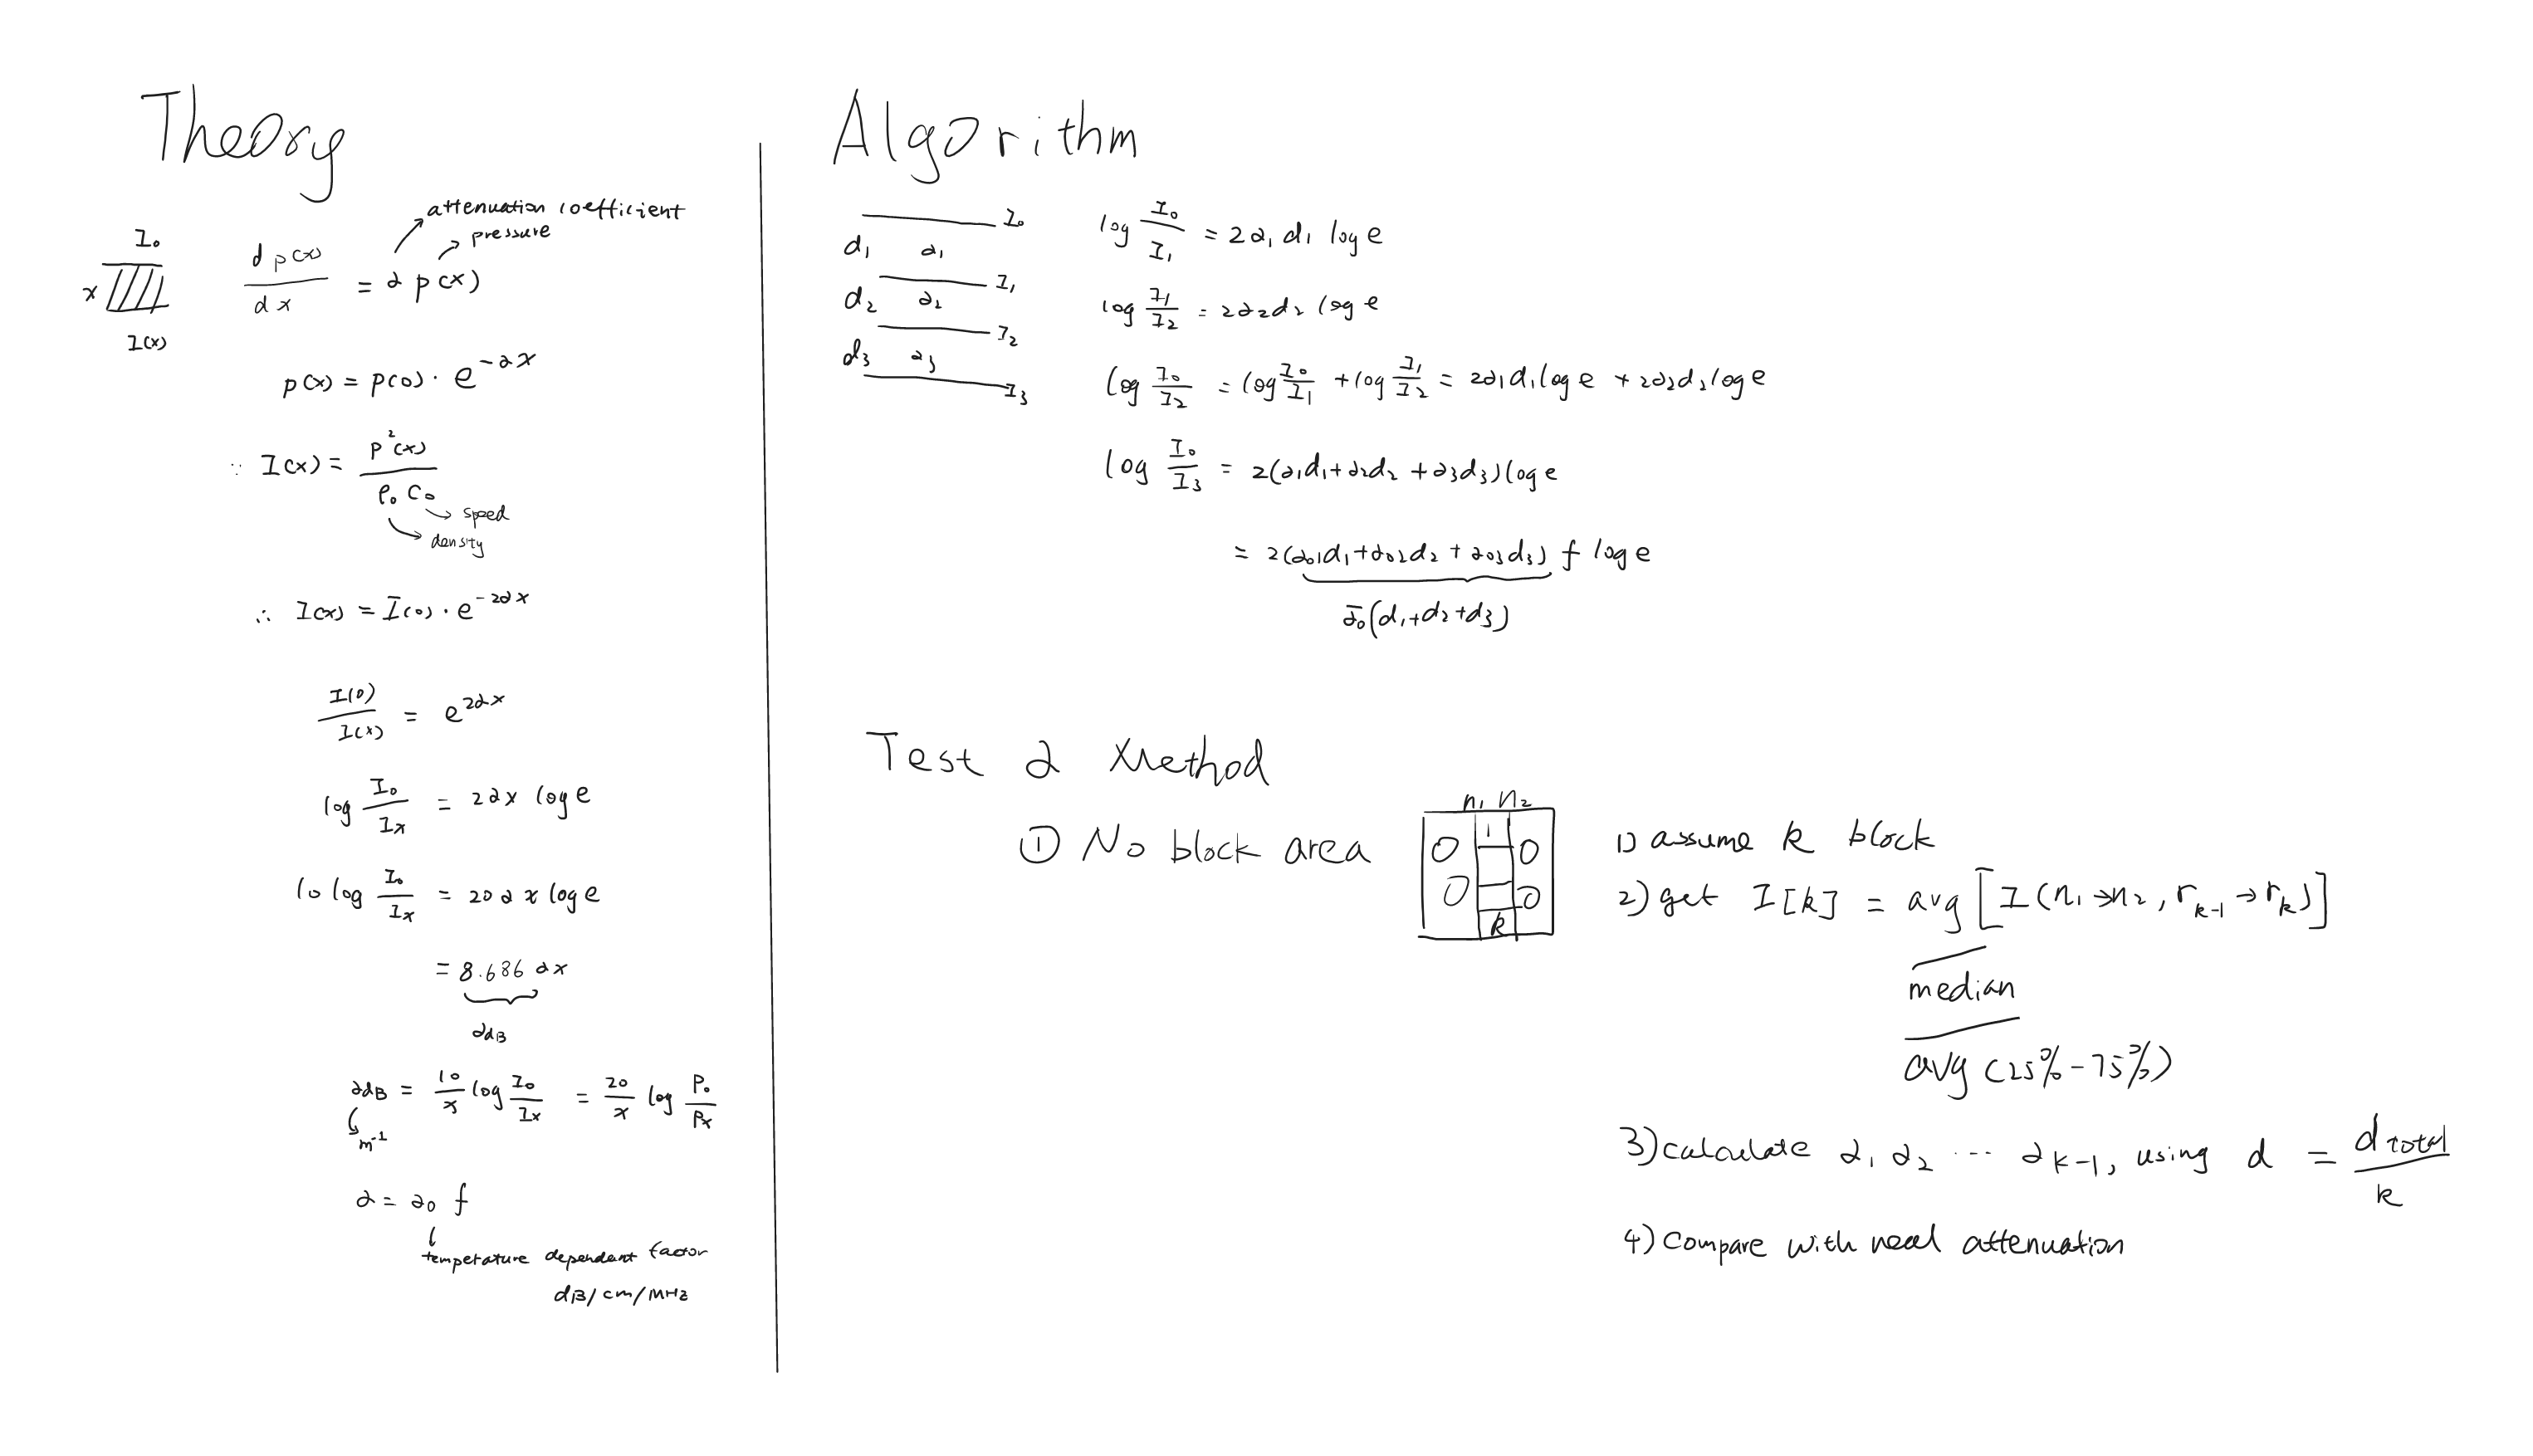 Theory
attenuation coefficient
pressure
I₀
x
I(x)
dp(x)/dx = α p(x)
p(x) = p(0) · e^(-αx)
∵ I(x) = p²(x)/(ρ₀ C₀)
speed
density
∴ I(x) = I(0) · e^(-2αx)
I(0)/I(x) = e^(2αx)
log I₀/Ix = 2αx log e
10 log I₀/Ix = 20αx log e
= 8.686 αx
αdB
αdB = 10/x log I₀/Ix = 20/x log P₀/Px
m⁻¹
α = α₀ f
temperature dependent factor
dB/cm/MHz
Algorithm
I₀
d₁ α₁
I₁
d₂ α₂
I₂
d₃ α₃
I₃
log I₀/I₁ = 2α₁d₁ log e
log I₁/I₂ = 2α₂d₂ log e
log I₀/I₂ = log I₀/I₁ + log I₁/I₂ = 2α₁d₁ log e + 2α₂d₂ log e
log I₀/I₃ = 2(α₁d₁ + α₂d₂ + α₃d₃) log e
= 2(α₀₁d₁ + α₀₂d₂ + α₀₃d₃) f log e
ᾱ₀(d₁+d₂+d₃)
Test α Method
① No block area
n₁ n₂
1
k
1) assume k block
2) get I[k] = avg[I(n₁→n₂, r_(k-1)→r_k)]
median
avg (25%-75%)
3) calculate α₁ α₂ ... α_(k-1), using d = d_total/k
4) compare with real attenuation